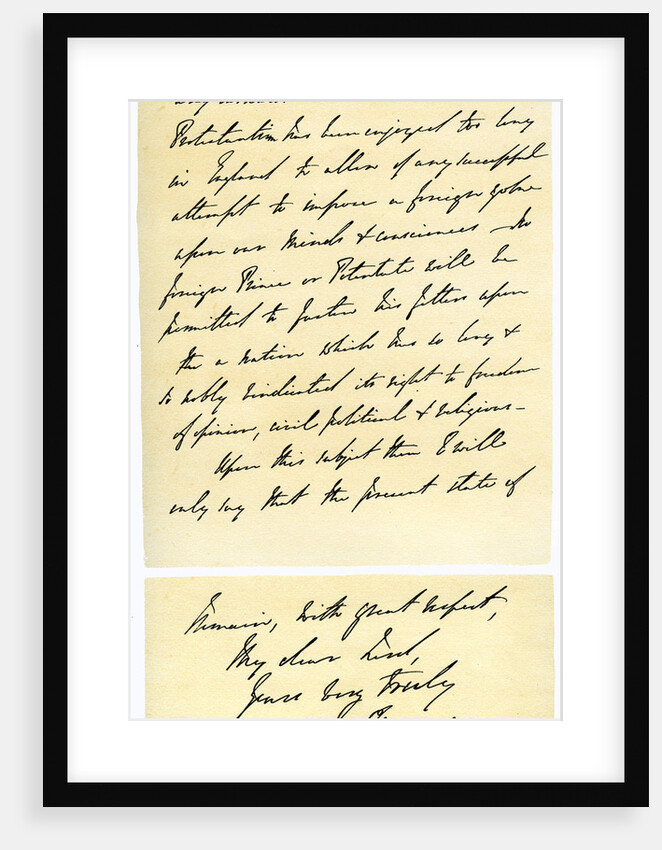 Protestantism has been enjoyed too long
in England to allow of any successful
attempt to impose a foreign yoke
upon our minds & consciences – No
foreign Prince or Potentate will be
permitted to fasten his fetters upon
the a nation which has so long &
so nobly vindicated its right to freedom
of opinion, civil political & religious –
Upon this subject then I will
only say that the present state of
Remain, with great respect,
My dear Lord,
Yours very truly